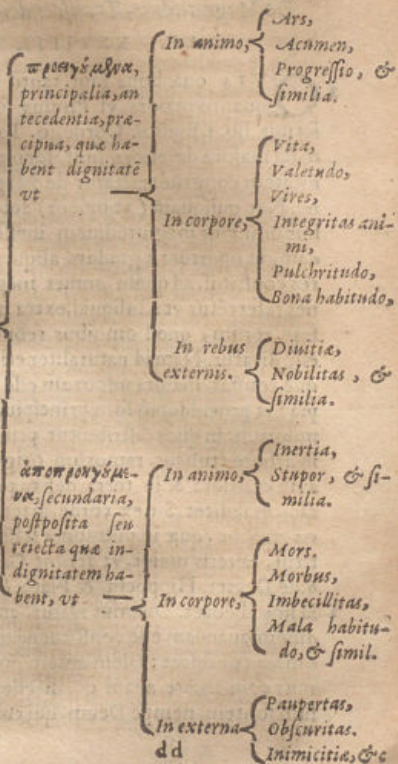 προηγύμενα,
principalia, an
tecedentia, præ-
cipua, quæ ha-
bent dignitatẽ
vt
In animo,
Ars,
Acumen,
Progressio, &
similia.
In corpore,
Vita,
Valetudo,
Vires,
Integritas ani-
mi,
Pulchritudo,
Bona habitudo,
In rebus
externis.
Diuitiæ,
Nobilitas, &
similia.
ἀποπροηγύμε-
να, secundaria,
postposita seu
reiecta quæ in-
dignitatem ha-
bent, vt
In animo,
Inertia,
Stupor, & si-
milia.
In corpore,
Mors.
Morbus,
Imbecillitas,
Mala habitu-
do, & simil.
In externa
Paupertas,
Obscuritas.
Inimicitiæ, &c
dd